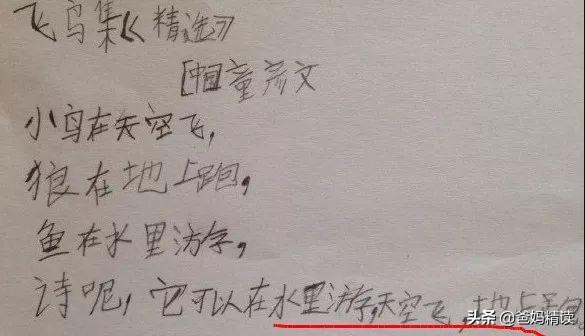 飞鸟集《精选》
[中国]童彦文
小鸟在天空飞，
狼在地上跑，
鱼在水里游，
诗呢，它可以在水里游，天空飞，地上跑
头条 @爸妈精读